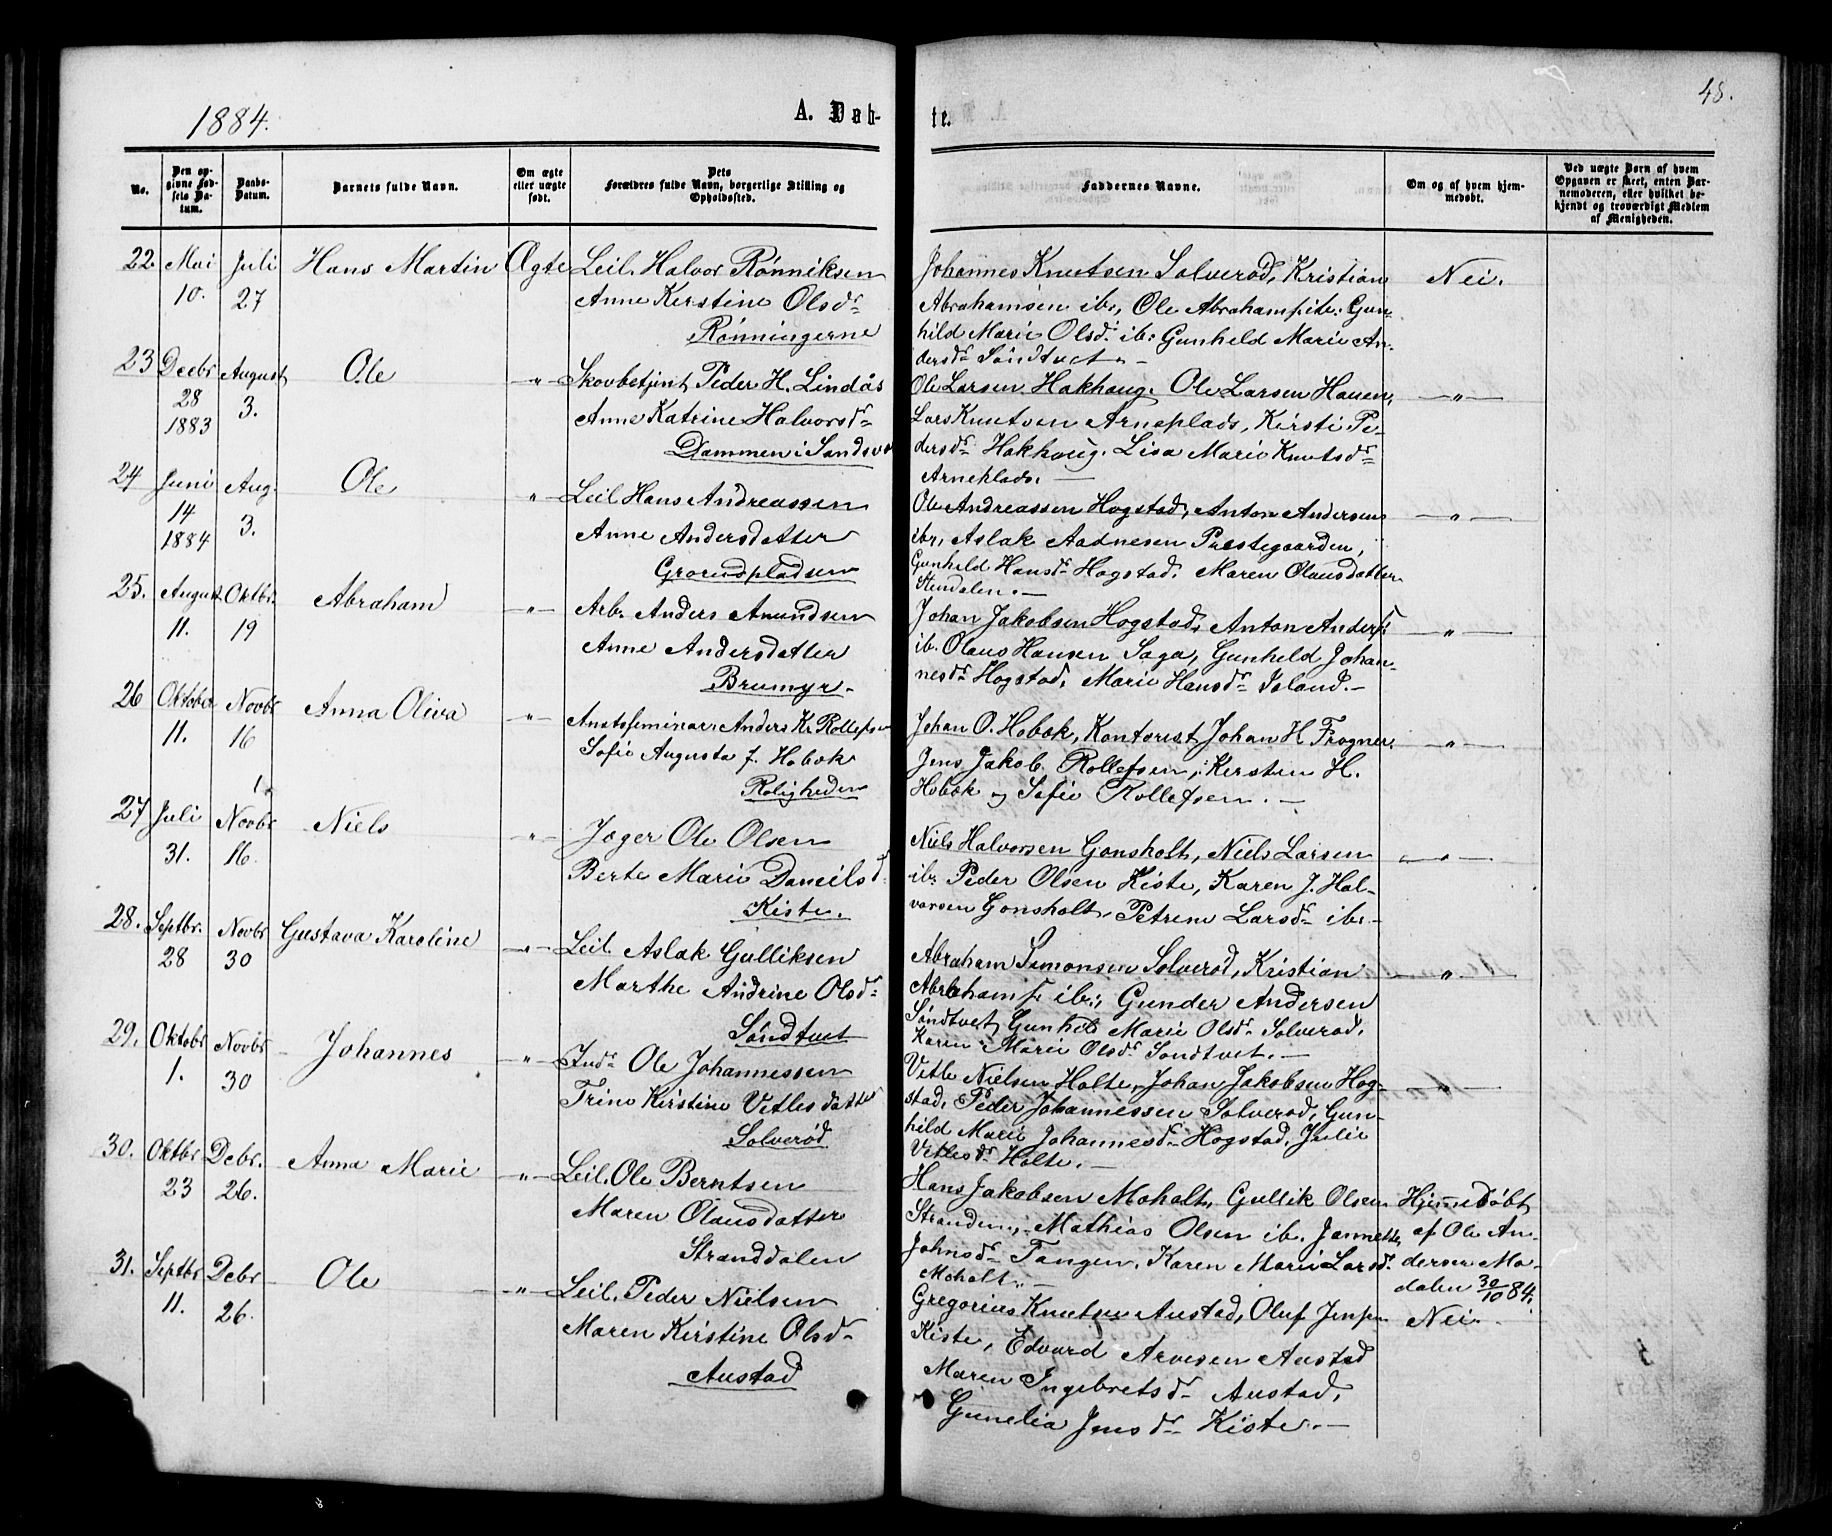 1884.
A. Døb-
te.
48.
No.
Den op-
givne Fød-
sels Da-
tum.
Daabs-
Datum.
Barnets fulde Navn.
Om ægte
eller uægte
født.
Dets
Forældres fulde Navn, borgerlige Stilling og
Opholdssted.
Faddernes Navne.
Om og af hvem hjem-
medøbt.
Ved uægte Børn af hvem
Opgaven er skeet, enten Bar-
nemoderen, eller hvilket be-
kjendt og troværdigt Medlem
af Menigheden.
22. Mai 10. Juli 27 Hans Martin Ægte
Leil. Halvor Rønniksen
Anne Kerstine Olsdr
Rønningerne
Johannes Knutsen Solverød, Kristian
Abrahamsen ib., Ole Abrahamsen ib. Gun-
hild Marie Olsd. ib. Gunhild Marie An-
dersdr Søndtvet. —
Nei.
23 Decbr 28 1883 August 3. Ole — " —
Skovbetjent Peder H. Lindås
Anne Katrine Halvorsdr
Dammen i Sandsv
Ole Larsen Hakhaug. Ole Larsen Hauen,
Lars Knutsen Arneplads, Kirsti Pe-
dersdr Hakhaug. Lisa Marie Knutsdr
Arneplads. —
— " —
24 Juni 14 1884 Aug. 3. Ole — " —
Leil Hans Andreassen
Anne Andersdatter
Grorudpladsen
Ole Andreassen Hogstad, Anton Andersen
ib., Aslak Aadnesen Præstegaarden,
Gunhild Hansdr Hogstad. Maren Olausdatter
Stendalen. —
— " —
25. August 11. Oktbr. 19 Abraham — " —
Arb. Anders Amundsen
Anne Andersdatter
Brumyr.
Johan Jakobsen Hogstad, Anton Anders.
ib. Olaus Hansen Saga, Gunhild Johan-
nesdr Hogstad, Marie Hansdr Island. —
— " —
26 Oktober 11. Novbr 16 Anna Oliva — " —
Amtsseminar. Anders Kr. Rollefsen
Sofie Augusta J. Hobæk
Roligheden
Johan O. Hobæk, Kontorist Johan H. Frogner.
Jens Jakob Rollefsen, Kersten H.
Hobæk og Sofie Rollefsen. —
— " —
27 Juli 31. Novbr 16. Niels — " —
Jæger Ole Olsen
Berte Marie Daneilsd
Kiste.
Niels Halvorsen Gonsholt, Niels Larsen
ib. Peder Olsen Kiste, Karen J. Hal-
vorsen Gonsholt, Petrine Larsdr ib. —
— " —
28. Septbr. 28 Novbr 30 Gustava Karoline — " —
Leil. Aslak Gulliksen
Marthe Andrine Olsdr
Søndtvet
Abraham Simonsen Solverød, Kristian
Abrahams. ib., Gunder Andersen
Søndtvet Gunhild Marie Olsdr Solverød,
Karen Marie Olsdr Søndtvet. —
— " —
29. Oktobr 1. Novbr 30 Johannes — " —
Indr Ole Johannessen
Trine Kirstine Vetlesdatter
Solverød
Vetle Nielsen Holte, Johan Jakobsen Hog-
stad, Peder Johannessen Solverød, Gun-
hild Marie Johannesdr Hogstad, Julie
Vetlesdr Holte. —
— " —
30. Oktbr 23 Debr. 26. Anna Marie — " —
Leil. Ole Berntsen
Maren Olausdatter
Stranddalen
Hans Jakobsen Moholt, Gullik Olsen
Stranden, Mathias Olsen ib. Jannette
Johnsdr Tangen, Karen Marie Larsd.
Moholt. —
Hjemmedøbt
af Ole An-
dersen Mo-
dalen 30/10 84.
31. Septbr 11. Debr 26. Ole — " —
Leil. Peder Nielsen
Maren Kirstine Olsdr
Austad
Gregorius Knutsen Austad, Oluf Jensen
Kiste, Edvard Arvesen Austad
Maren Ingebretsdr Austad,
Gunelia Jensdr Kiste. —
Nei.